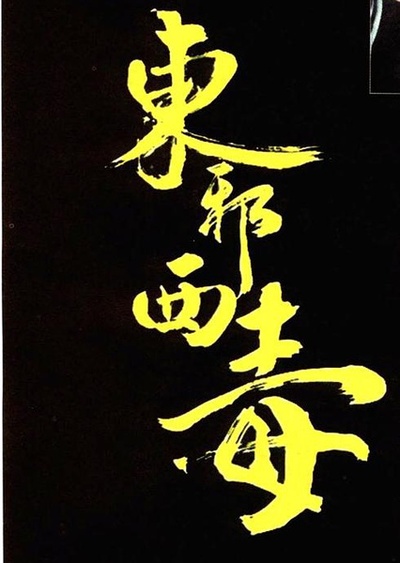 東邪西毒